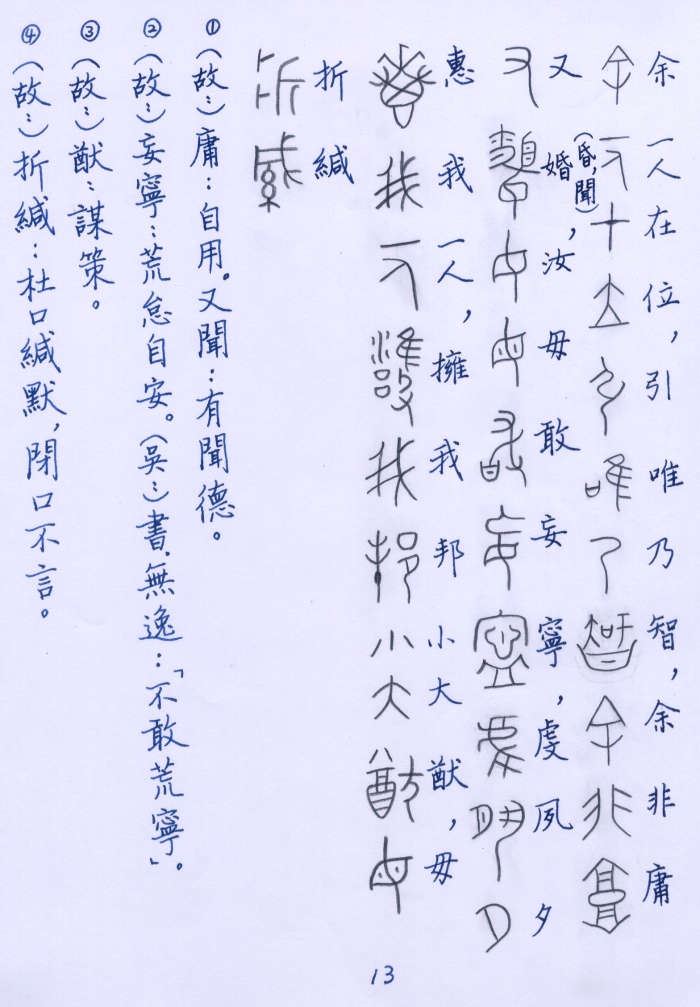 余一人在位，引唯乃智，余非庸
又婚（昏，聞），汝毋敢妄寧，虔夙夕
惠我一人，擁我邦小大猷，毋
折緘
①（故：）庸：自用。又聞：有聞德。
②（故：）妄寧：荒怠自安。（吳：）書．無逸：「不敢荒寧」。
③（故：）猷：謀策。
④（故：）折緘：杜口緘默，閉口不言。
13